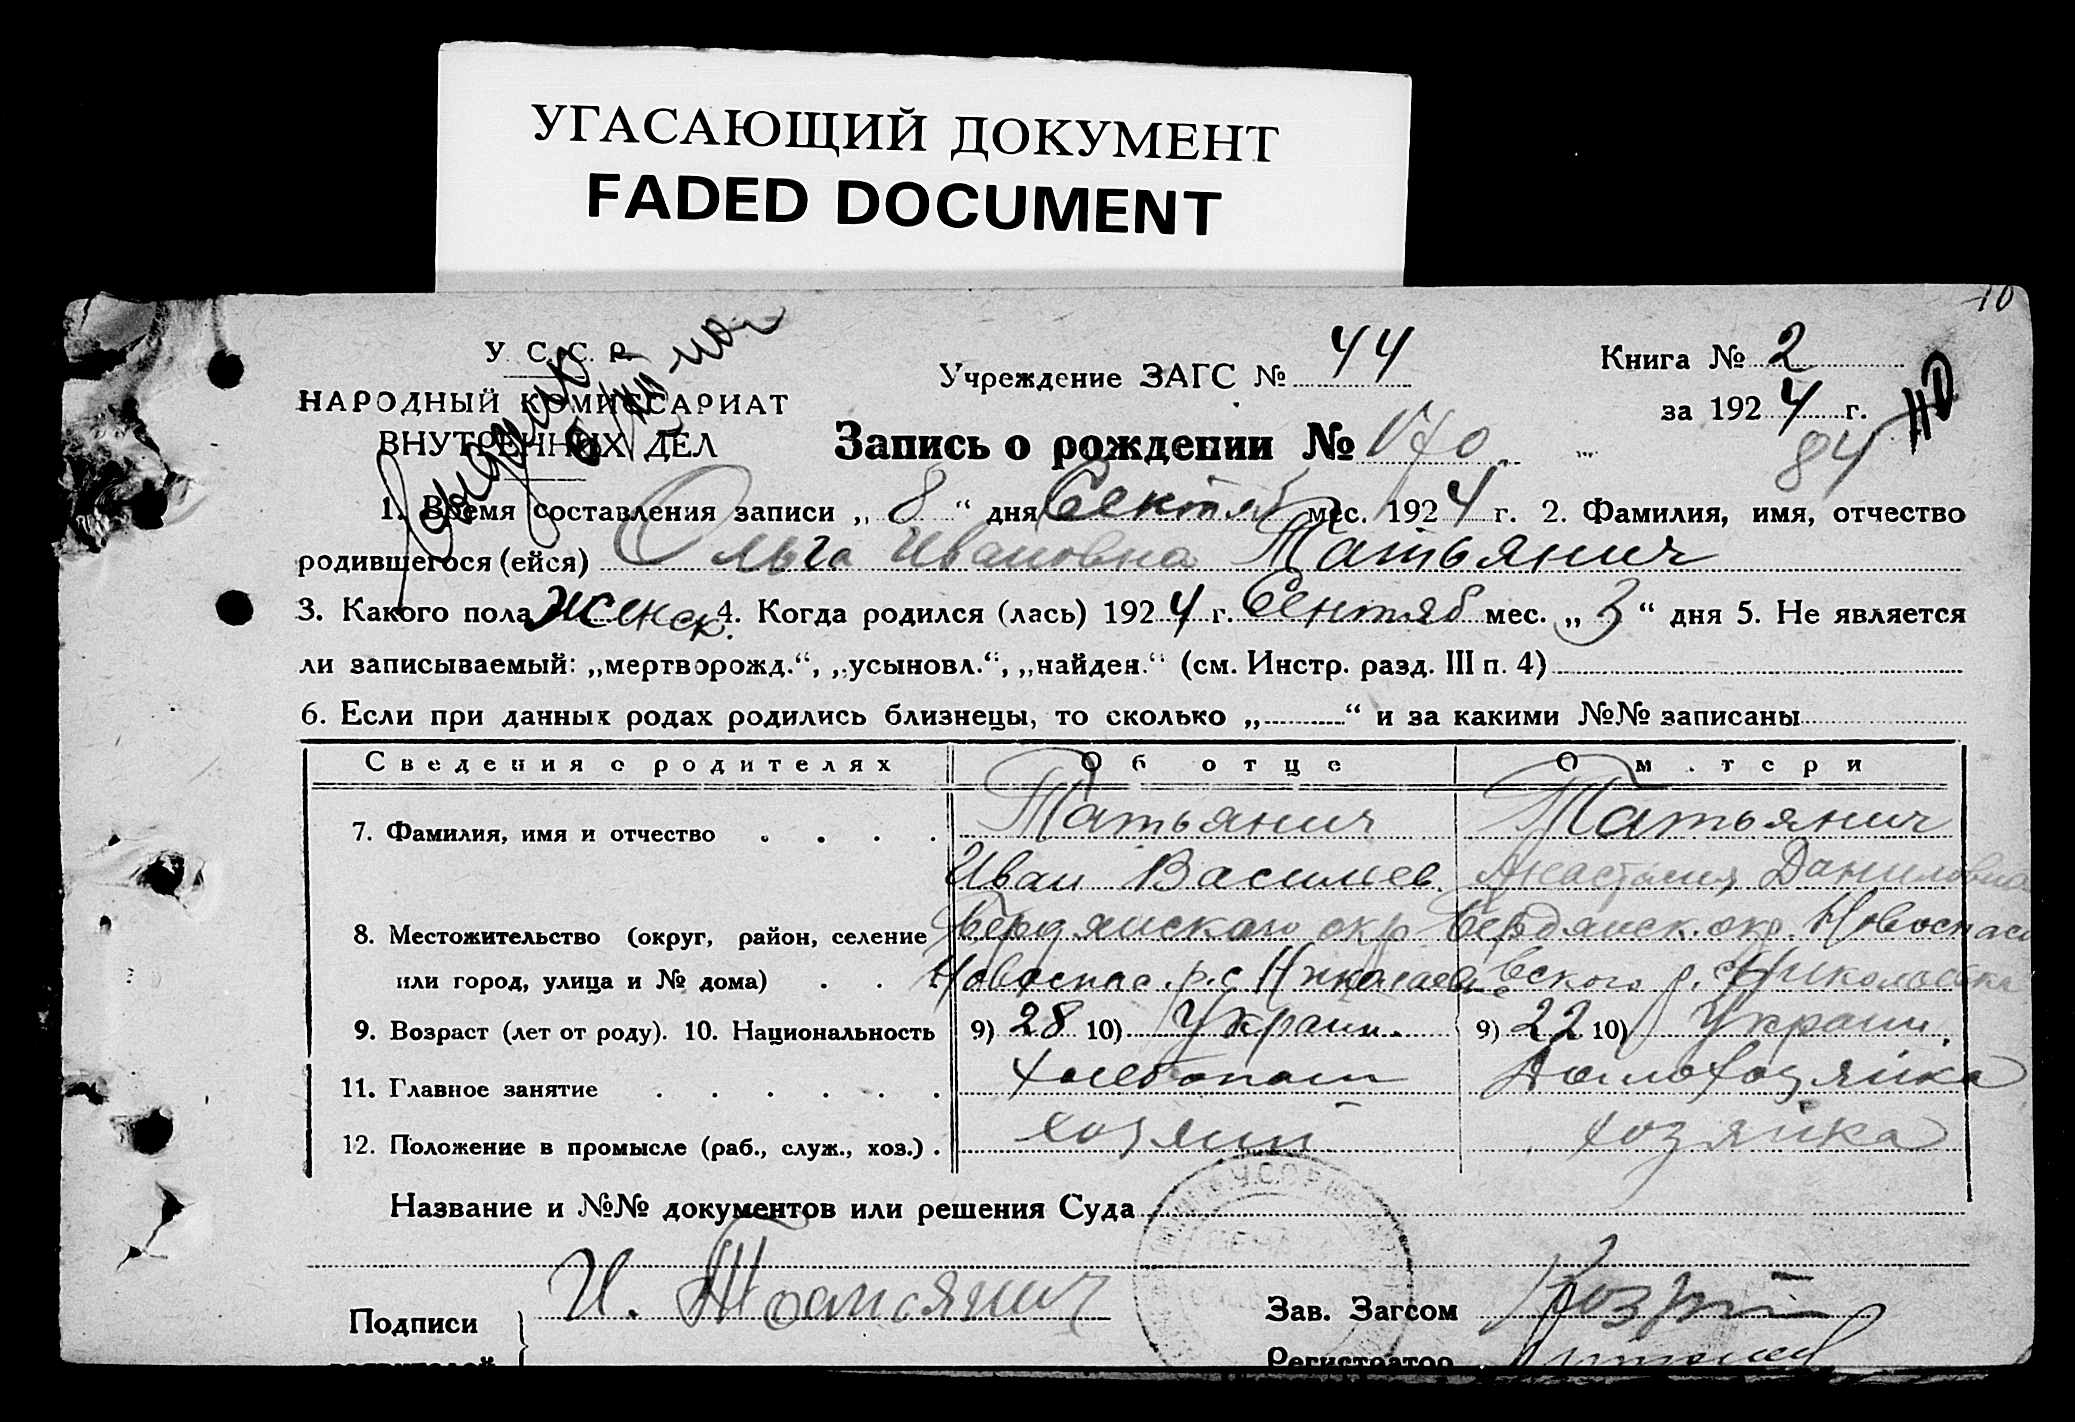 УГАСАЮЩИЙ ДОКУМЕНТ
FADED DOCUMENT
10
У. С. С. Р.
НАРОДНЫЙ КОМИССАРИАТ
ВНУТРЕННИХ ДЕЛ
Учреждение ЗАГС № 44
Книга № 2
за 1924 г.
84
Запись о рождении № 170
1. Время составления записи „ 8 “ дня Сентяб мес. 1924 г. 2. Фамилия, имя, отчество
родившегося (ейся) Ольга Ивановна Татьянич
3. Какого пола женск. 4. Когда родился (лась) 1924 г. Сентяб мес. „ 3 “ дня 5. Не является
ли записываемый: „мертворожд.“, „усыновл.“, „найден.“ (см. Инстр. разд. III п. 4)
6. Если при данных родах родились близнецы, то сколько „ “ и за какими №№ записаны
Сведения о родителях Об отце О м.тери
7. Фамилия, имя и отчество . . . . Татьянич Татьянич
Иван Василиев. Анастасия Даниловна
8. Местожительство (округ, район, селение Бердянского окр. Бердянск. окр. Новоспасо
или город, улица и № дома) . . Новоспас. р. с. Николаев вского р. с. Николаевка
9. Возраст (лет от роду). 10. Национальность 9) 28 10) Украин. 9) 22 10) Украин.
11. Главное занятие . . . . . . Хлебопаш Домохозяйка
12. Положение в промысле (раб., служ., хоз.) . хозяин хозяйка
Название и №№ документов или решения Суда
Подписи И. Татьянич Зав. Загсом
Регистратор